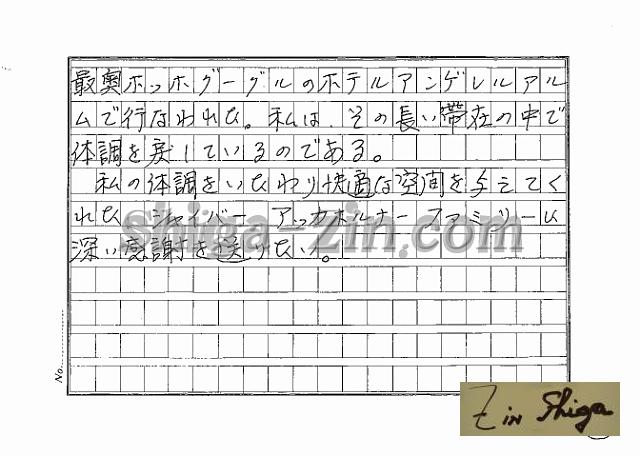 最奥ホッホグーグルのホテルアンゲレルアル
ムで行なわれた。私は、その長い滞在の中で
体調を戻しているのである。
私の体調をいたわり快適な空間を与えてく
れた シャイバー アッカボルナー ファミリーに
深い感謝を送りたい。
shiga-zin.com
No.
Z in Shiga